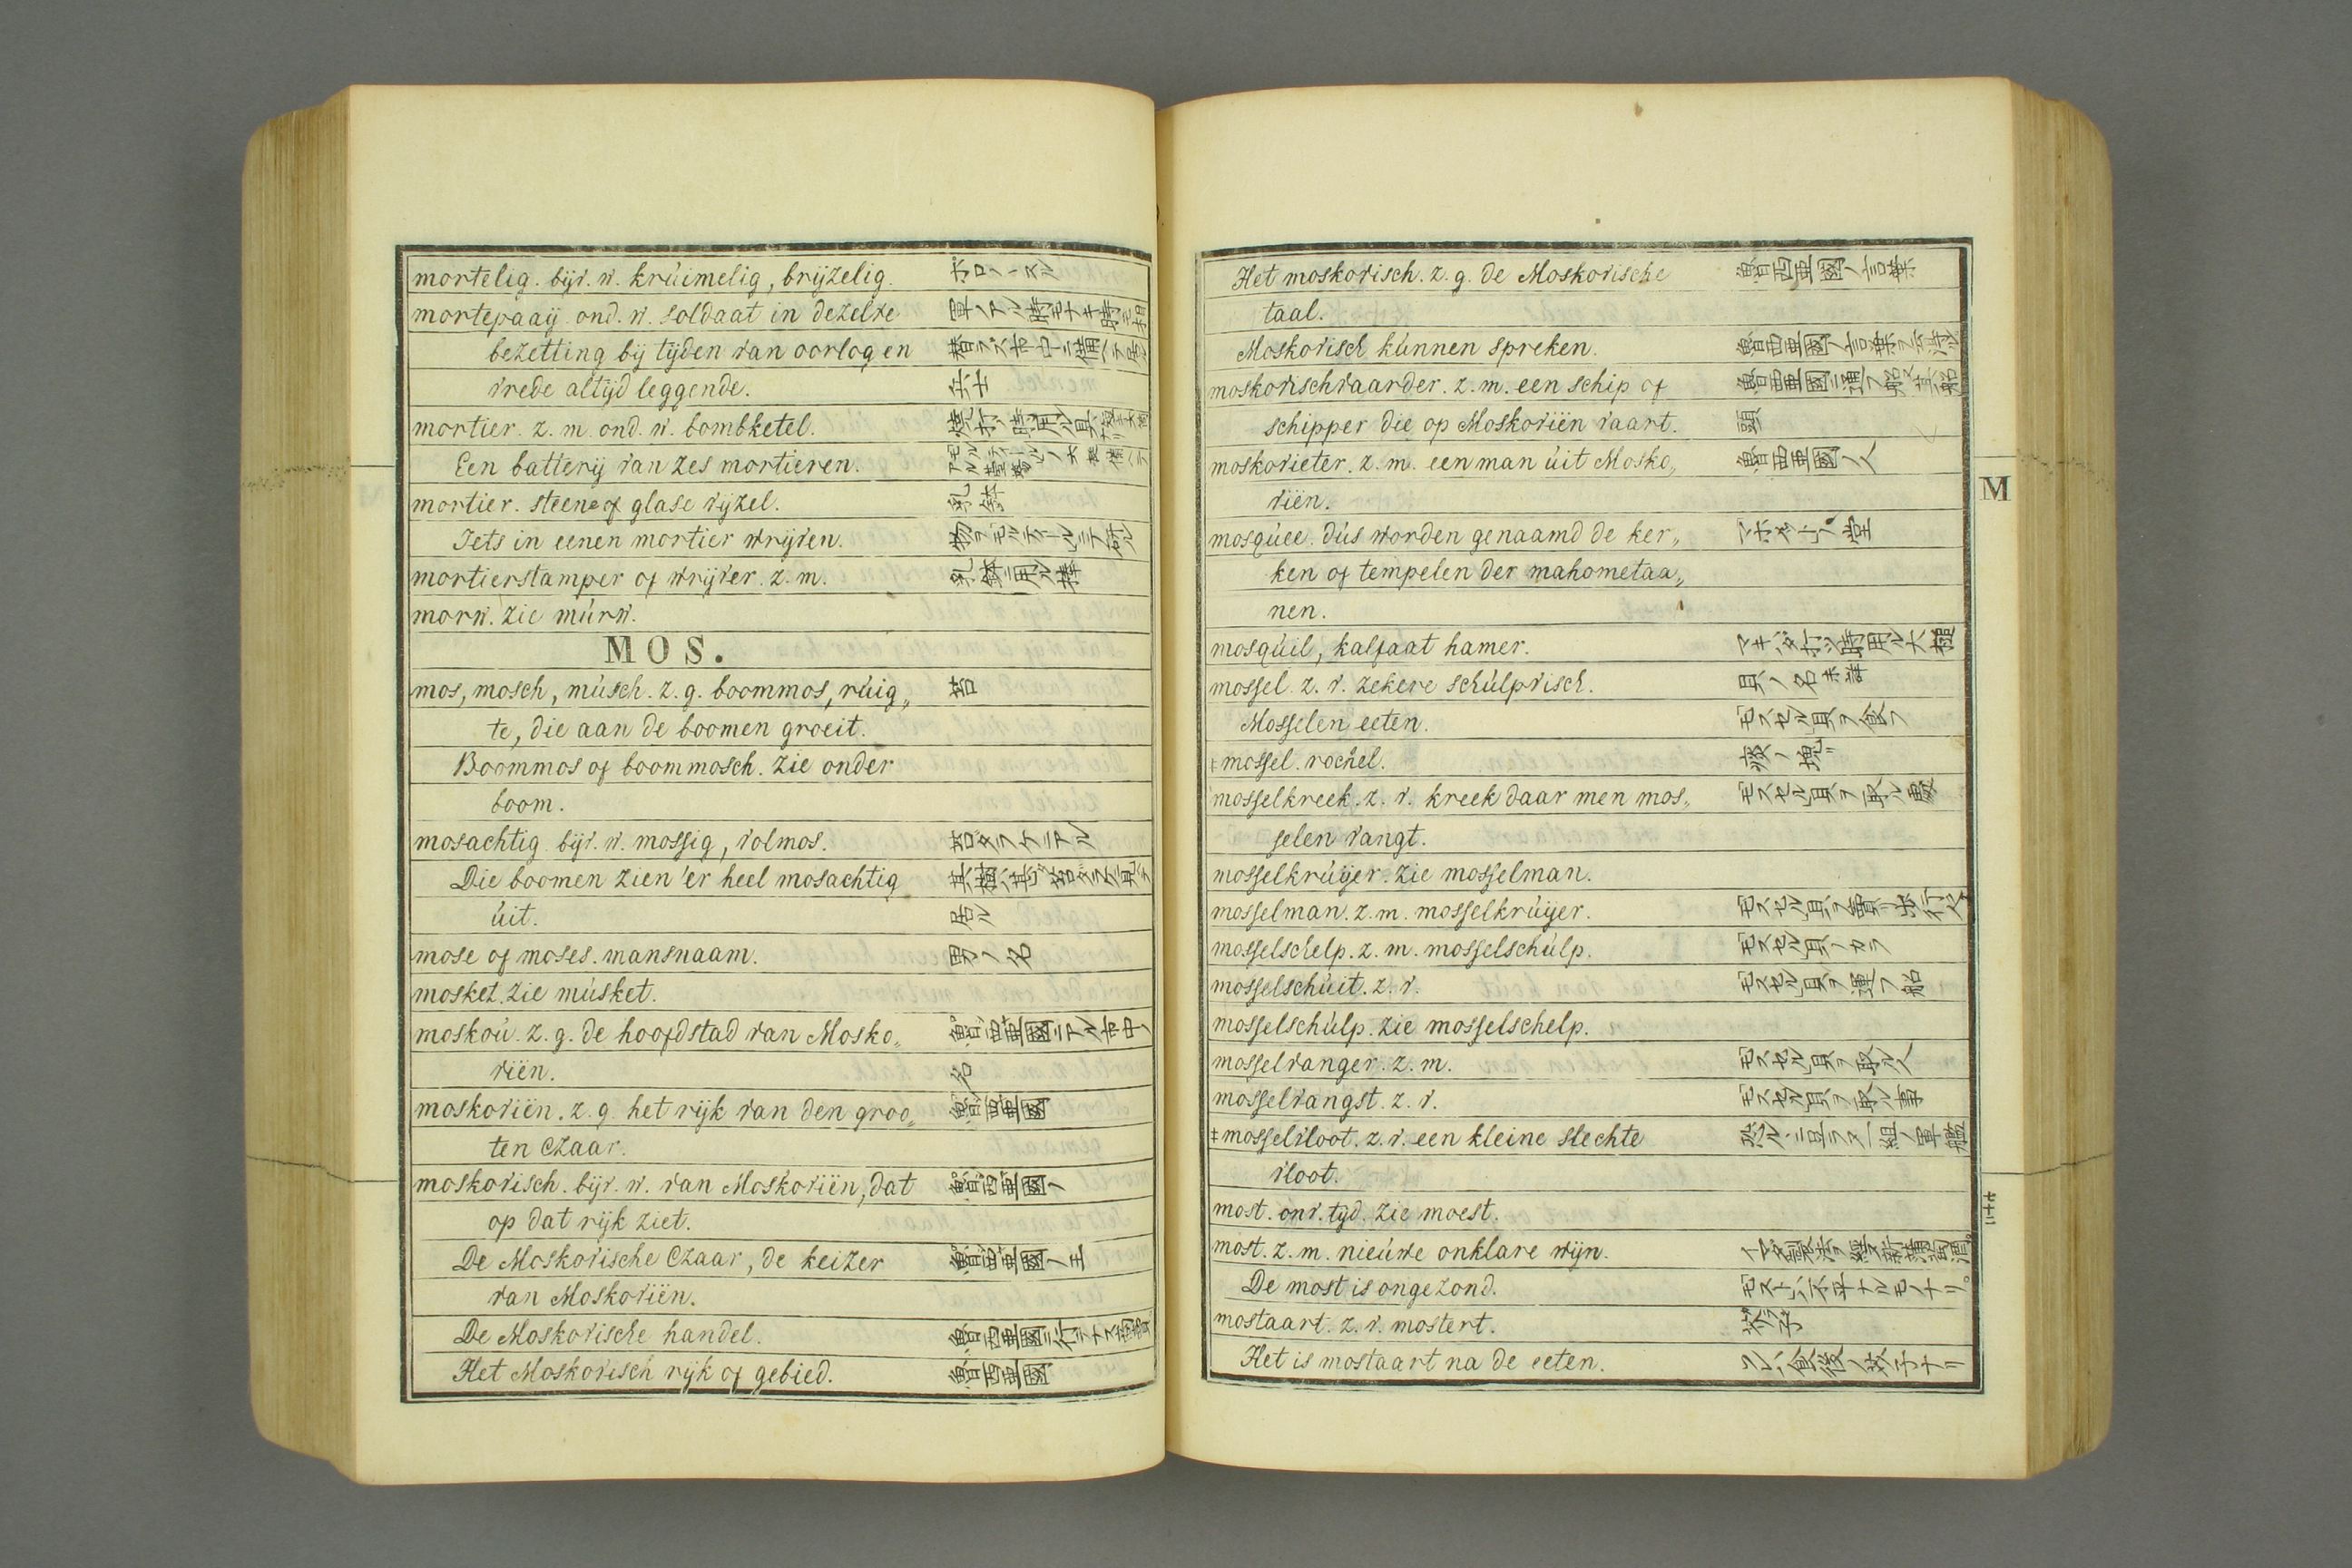 mortelig. bijv. w. krúimelig, brijzelig. ホロノヽスル
mortepaaij ond. w. soldaat in dezelve 軍ノアル時モナキ時モ相
bezetting bij tijden van oorlog en 替ラズ市中ニ備ヘテ居ル
vrede altijd leggende. 兵士
mortier. z. m. ond. w. bombketel.
Een batterij van zes mortieren.
mortier. steene of glase vijzel. 乳鉢
Iets in eenen mortier wrijven. 物ヲモルチールニテ研ル
mortierstamper of wrijver. z. m. 乳鉢ニ用ル棒
morw. zie múrw.
MOS.
mos, mosch, músch. z. g. boommos, rúig„ 苔
te, die aan de boomen groeit.
Boommos of boommosch. zie onder
boom.
mosachtig bijv. w. mossig, volmos. 苔ダラケニテアル
Die boomen zien 'er heel mosachtig
úit. 居ル
mose of moses. mansnaam. 男ノ名
mosket. zie músket.
moskoú. z. g. de hoofdstad van Mosko„ 魯西亜國ニアル市中ノ
viën. 名
moskoviën. z. g. het rijk van den groo„ 魯西亜國
ten Czaar.
moskovisch. bijv. w. van Moskoviën, dat 魯西亜國ノ
op dat rijk ziet.
De Moskovische Czaar, de keizer 魯西亜國ノ王
van Moskoviën.
De Moskovische handel. 魯西亜國ニ行テナス商賣
Het Moskovisch rijk of gebied. 魯西亜國
Het moskovisch. z. g. de Moskovische 魯西亜國ノ言葉
taal.
Moskovisch kúnnen spreken. 魯西亜國ノ言葉ヲ云得ル
moskovischvaarder. z. m. een schip of 魯西亜國ニ通フ船又其船
schipper die op Moskoviën vaart. 頭
moskovieter. z. m. een man úit Mosko„ 魯西亜國ノ人
viën.
mosqúee. dús worden genaamd de ker„
ken of tempelen der mahometaa„
nen.
mosqúil, kalfaat hamer. マキハダ打ツ時用ル大槌
mossel. z. v. zekere schúlpvisch. 貝ノ名未詳
Mosselen eeten. モスセル貝ヲ食フ
‡mossel. rochel. 痰ノ塊リ
mosselkreek. z. v. kreek daar men mos„ モスセル貝ヲ取ル處
selen vangt.
mosselkrúijer. zie mosselman.
mosselman. z. m. mosselkrúijer. モスセル貝ヲ賣リ歩行ク人
mosselschelp. z. m. mosselschúlp. モスセル貝ノカラ
mosselschúit. z. v. モスセル貝ヲ運フ船
mosselschúlp. zie mosselschelp.
mosselvanger. z. m. モスセル貝ヲ取ル人
mosselvangst. z. v. モスセル貝ヲ取ル事
‡mosselvloot. z. v. een kleine slechte
vloot.
most. onv. tyd. zie moest.
most. z. m. nieúwe onklare wijn.
De most is ongezond. モストハ不平ナルモノナリ。
mostaart. z. v. mostert. 芥子
Het is mostaart na de eeten. コレハ食後ノ芥子ナリ
M